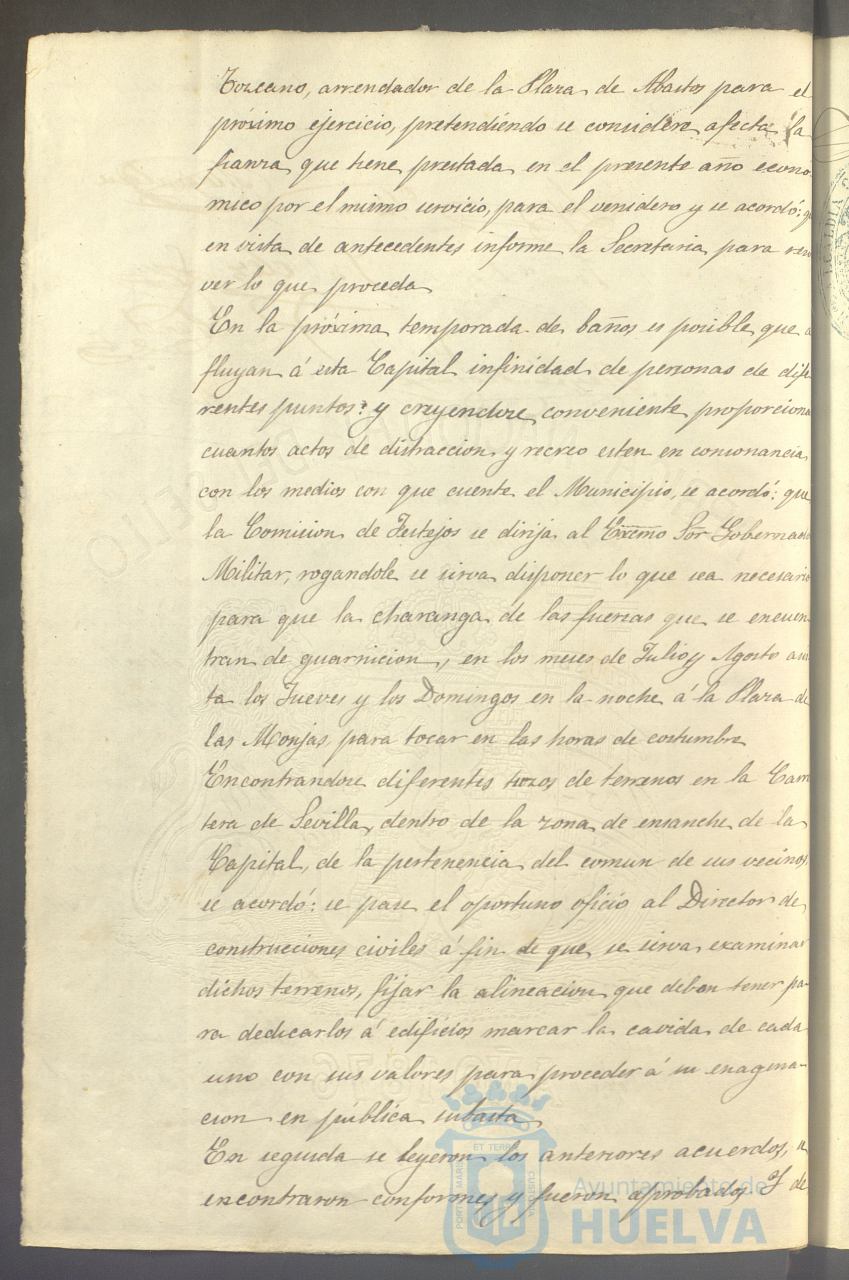 Tozcano, arrendador de la Plaza de Abastos para el
próximo ejercicio, pretendiéndo se considere afecta la
fianza que tiene prestada en el presente año econo-
mico por el mismo servicio, para el venidero y se acordó: q
en vista de antecedentes informe la Secretaria para
ver lo que proceda
En la próxima temporada de baños es posible que a
fluyan á esta Capital infinidad de personas de dife
rentes puntos: y creyendose conveniente proporciona
cuantos actos de distraccion y recreo esten en consonancia
con los medios con que cuente el Municipio, se acordó: que
la Comision de Festejos se dirija al Excmo Sor Gobernado
Militar, rogandole se sirva disponer lo que sea necesario
para que la charanga de las fuerzas que se encuen
tran de guarnicion, en los meses de Julio y Agosto asis
ta los Jueves y los Domingos en la noche á la Plaza de
las Monjas para tocar en las horas de costumbre
Encontrandose diferentes trozos de terrenos en la Carre
tera de Sevilla, dentro de la zona de ensanche de la
Capital, de la pertenencia del comun de sus vecinos
se acordó: se pase el oportuno oficio al Director de
construcciones civiles á fin de que se sirva examinar
dichos terrenos, fijar la alineacion que deban tener pa-
ra dedicarlos á edificios marcar la cavida de cada
uno con sus valores para proceder á su enagena-
cion en pública subasta
En seguida se leyeron los anteriores acuerdos, se
encontraron conformes y fueron aprobados Y de
ALCALDIA
SELLO
PORTUS MARIS ET TERRAE CUSTODIA
Ayuntamiento de
HUELVA